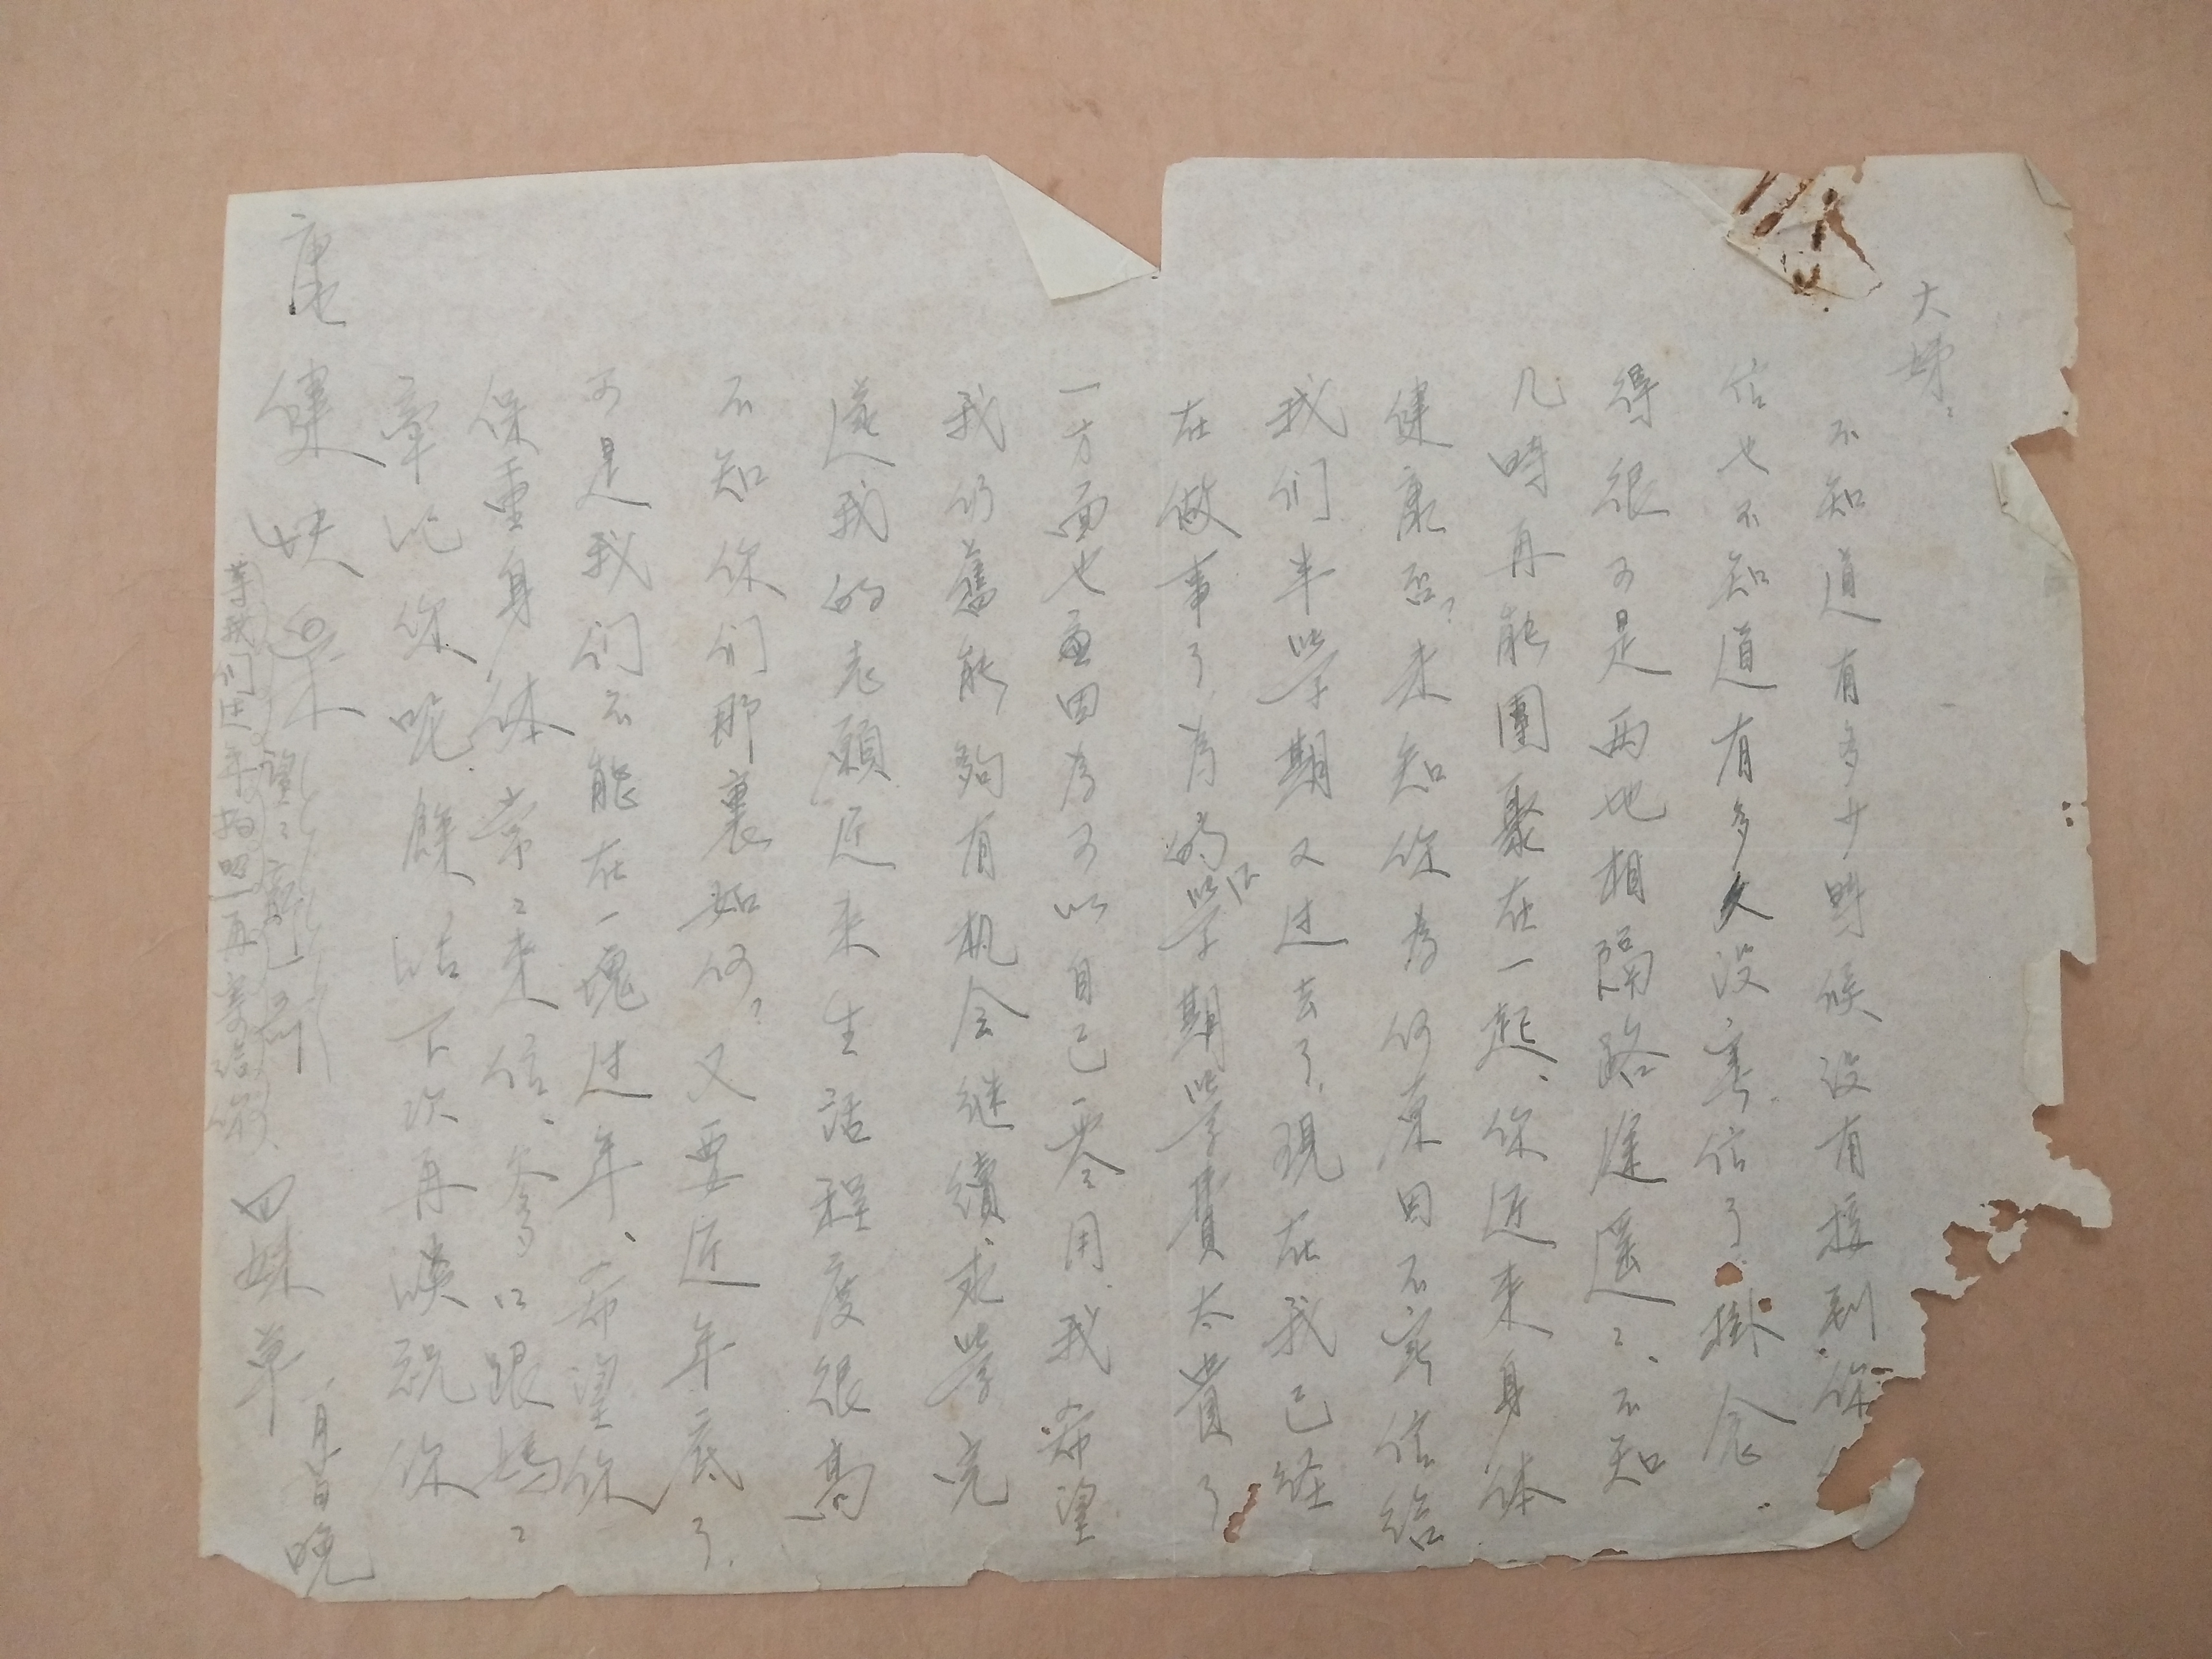 大姊：
不知道有多少時候没有接到你
信也不知道有多久没寄信了．掛念．
得很可是两地相隔路途遥々、不知
几時再能團聚在一起、你近来身体
健康否？未知你为何原因不寄信给
我们半學期又过去了．現在我已经
在做事了．为的學期學費太貴了
一方面也因为可以自己零用．我希望
我仍舊能夠有机会继續求學完
遂我的志願近来生活程度很高
不知你们那裏如何？又要近年底了．
可是我们不能在一塊过年、希望你
保重身体常々来信、爹口跟媽々
牽记你呢．餘话下次再谈祝你
康健快樂
望々
四妹草
一月 日晚
等我们过年拍照再寄给你．